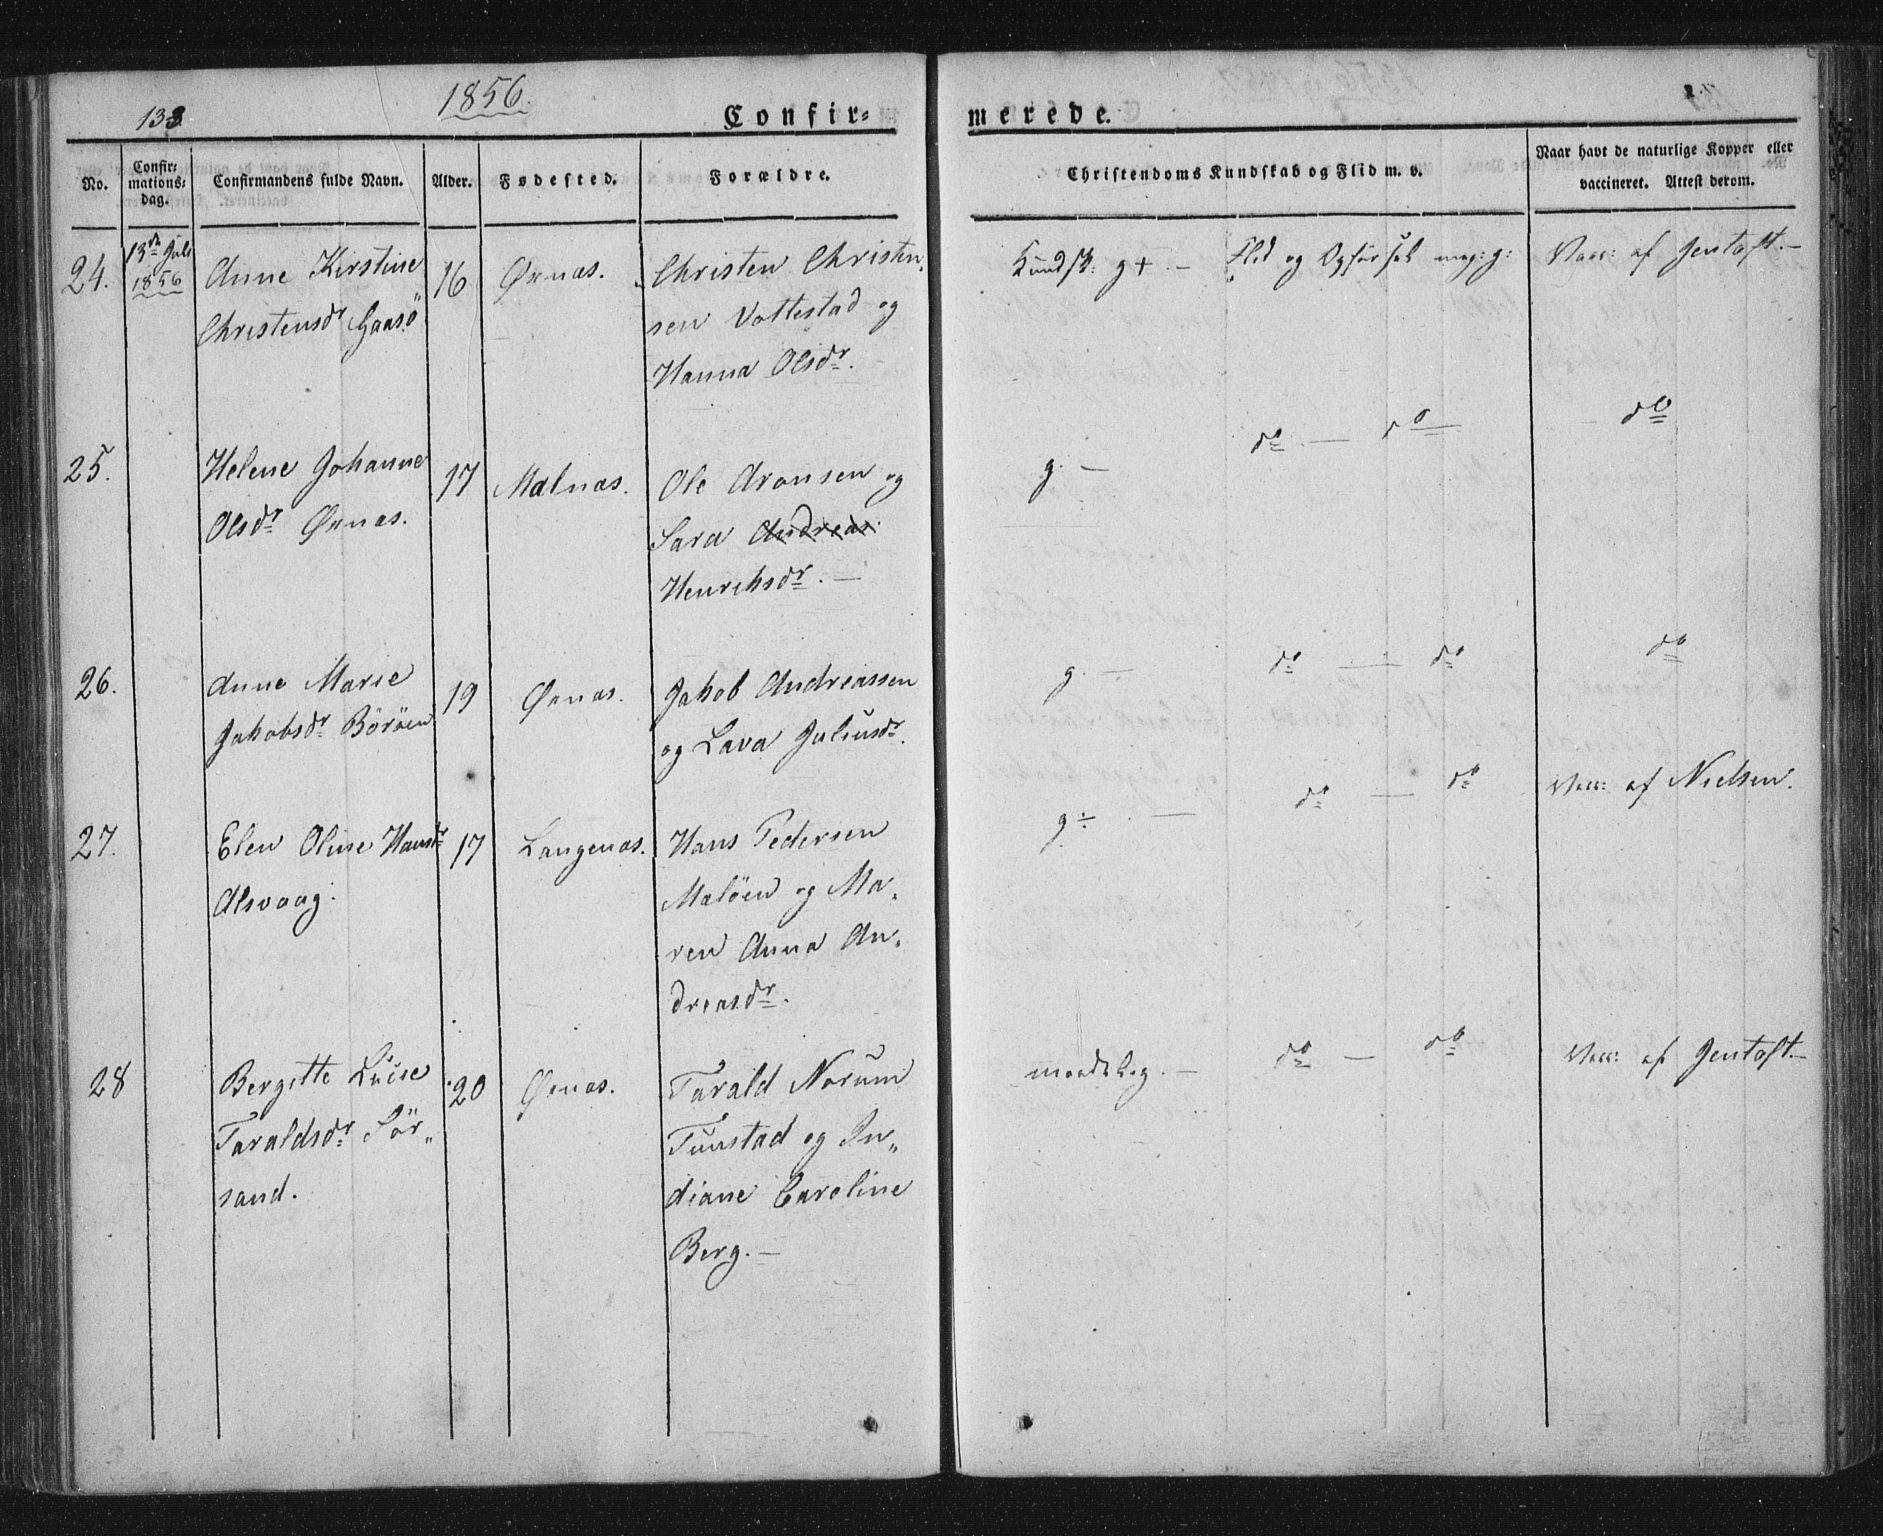 133
1856.
Confir=
merede.
No.
Confir=
mations=
dag.
Confirmandens fulde Navn.
Alder.
Fødested.
Forældre.
Christendoms Kundskab og Flid m. v.
Naar havt de naturlige Kopper eller
vaccineret. Attest derom.
24.
13de Juli
1856
Anne Kirstine
Christensdr Gaasö
16
Øxnæs.
Christen Christen=
sen Vottestad og
Hanna Olsdr.
Kundsk: g+ — Flid og Opførsel meg: g:
Vacc: af Jentoft.—
25.
Helene Johanne
Olsdr Øxnæs.
17
Malnæs.
Ole Aronsen og
Sara Andreas
Henrichsdr. —
g. —
do — do
do
26.
Anne Marie
Jakobsdr Böröen
19
Øxnæs.
Jakob Andreassen
og Lava Juliusdr.
g. —
do — do
do
27.
Elen Oline Hansdr
Alsvaag.
17
Langenæs.
Hans Pedersen
Malöen og Ma=
ren Anna An=
dreasdr.
g: —
do — do
Vacc: af Nielsen.
28
Bergitte Luise
Taraldsdr För=
sand.
20
Øxnæs.
Tarald Norum
Tunstad og In=
diane Caroline
Berg. —
maadelig. —
do — do
Vacc: af Jentoft.—